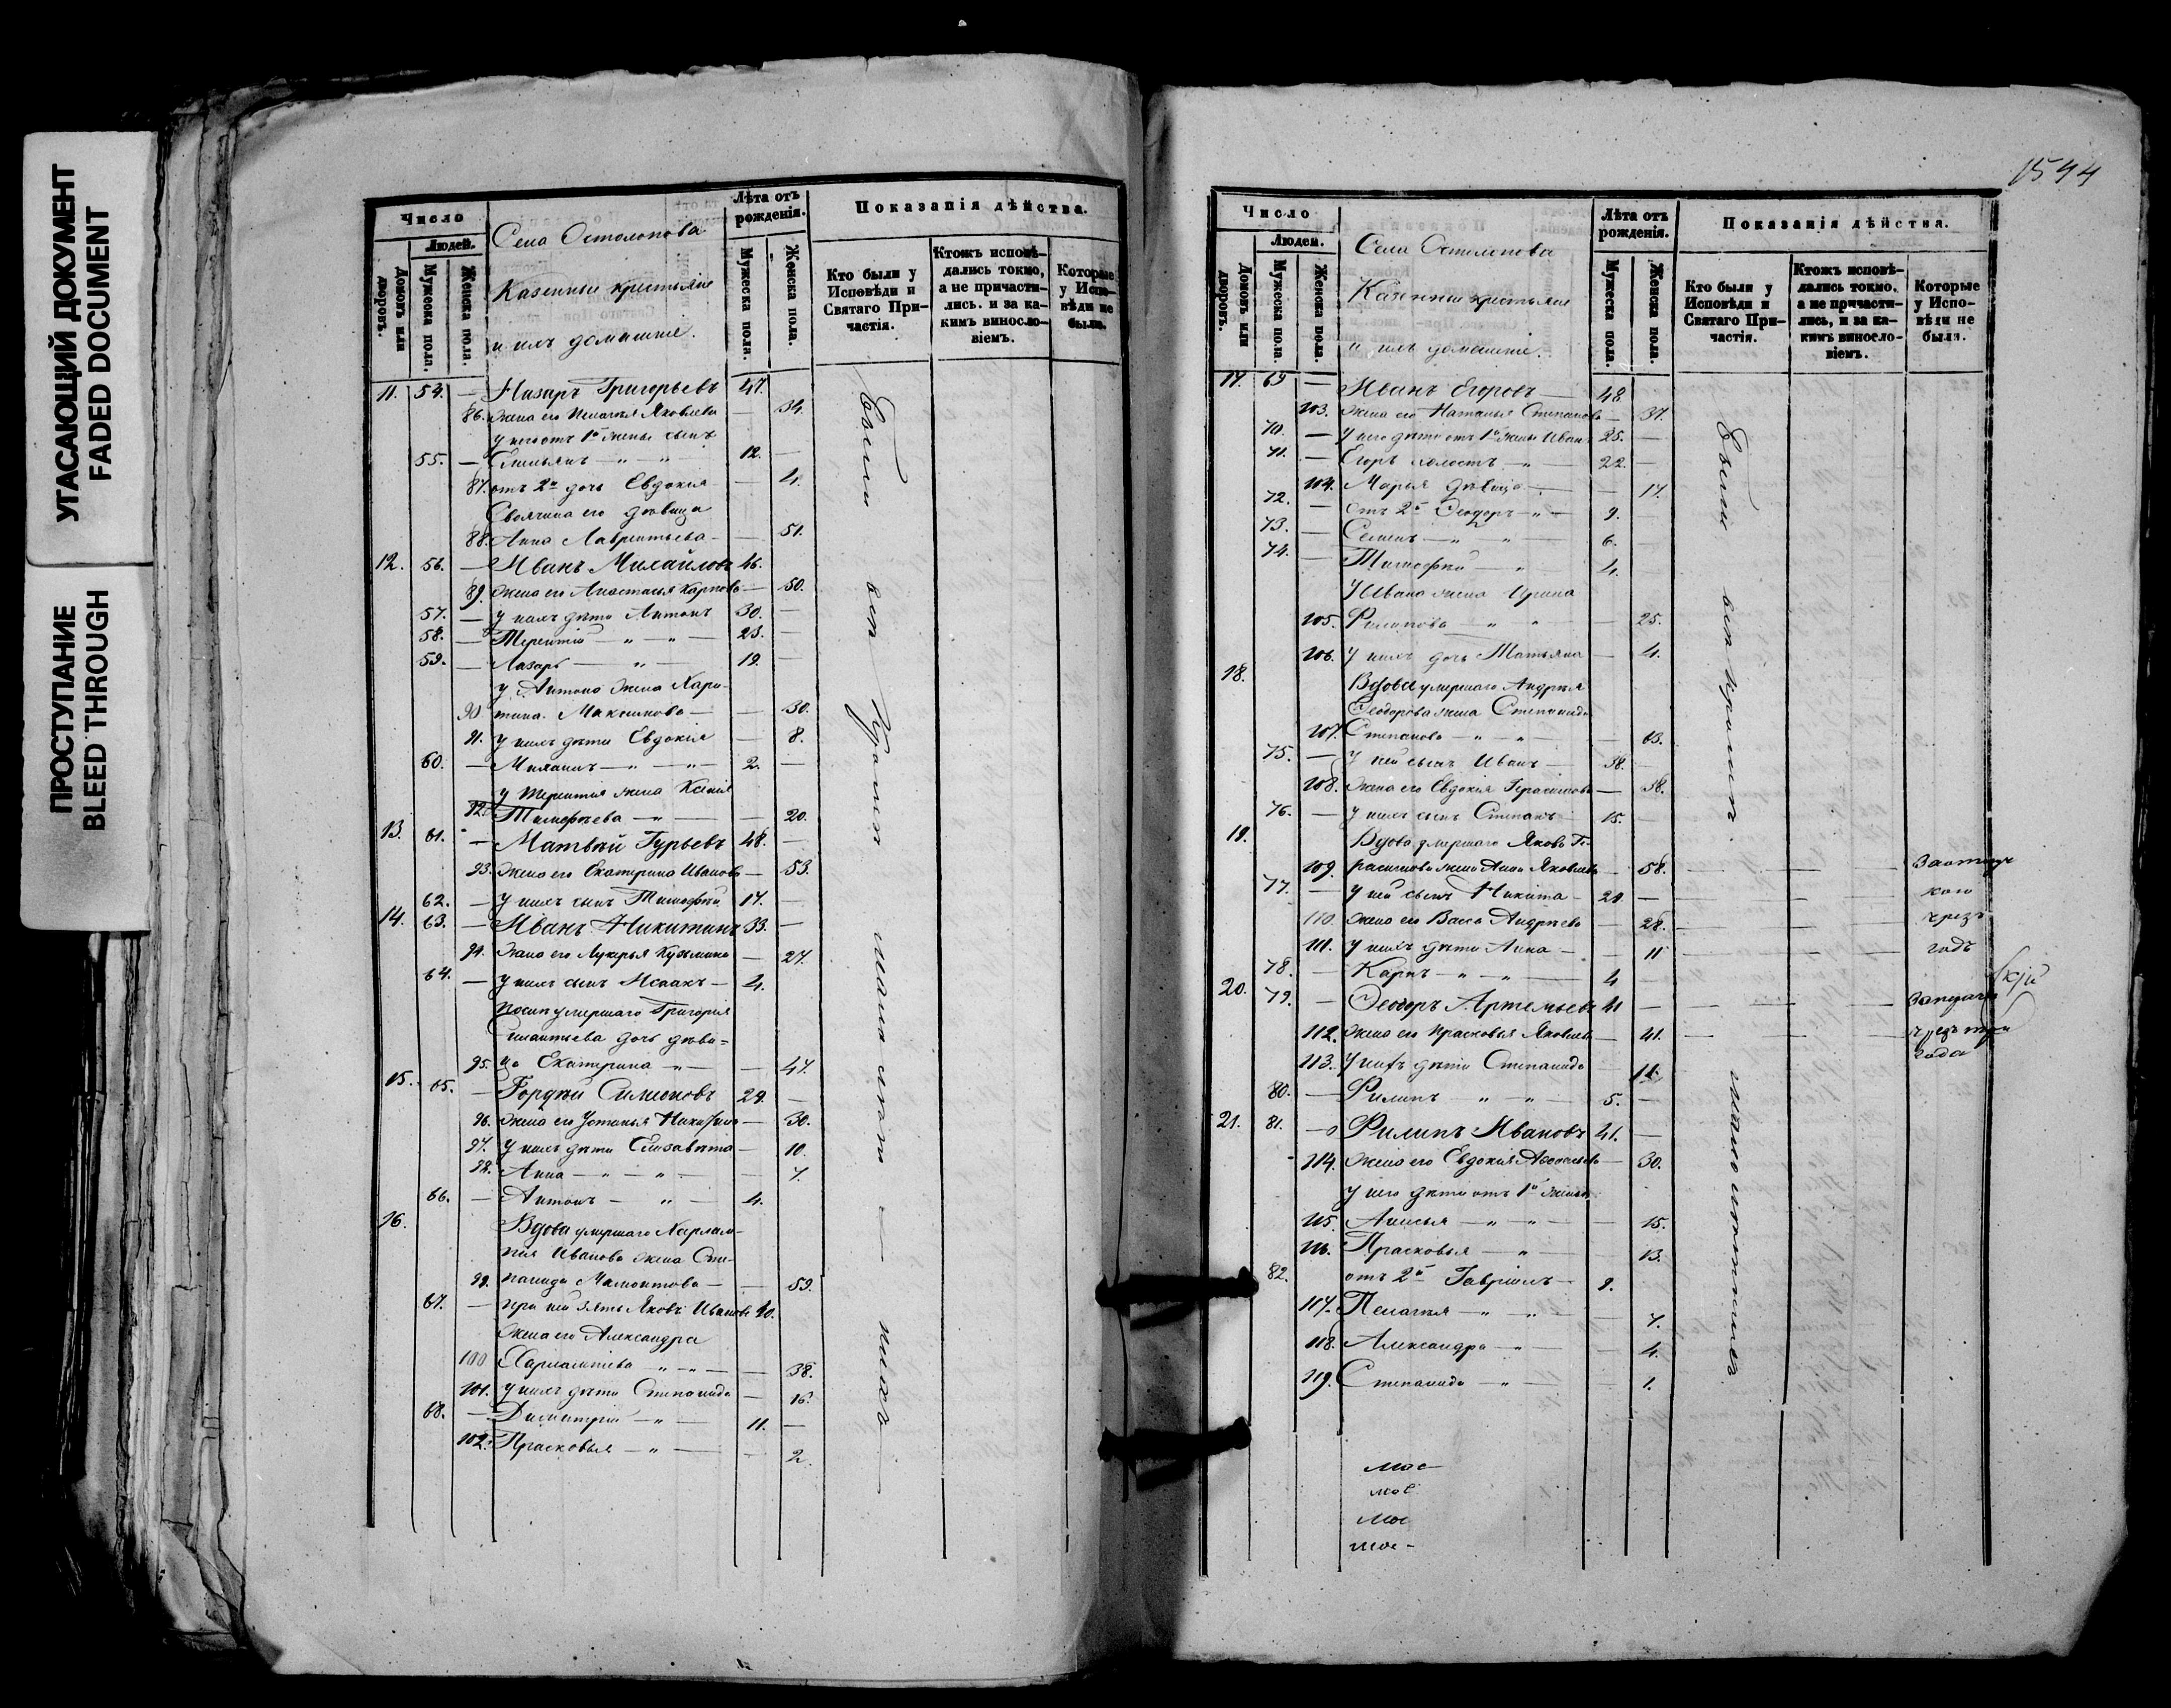 УГАСАЮЩИЙ ДОКУМЕНТ
FADED DOCUMENT
ПРОСТУПАНИЕ
BLEED THROUGH
Число
Людей.
Домовъ или дворовъ.
Мужеска пола.
Женска пола.
Села Остолопова
Казенныи крестьяне
и ихъ домашніе.
Лѣта отъ рожденія.
Мужеска пола.
Женска пола.
Показанія дѣйства.
Кто были у Исповѣди и Святаго Причастія.
Ктожъ исповѣдались токмо, а не причастились, и за какимъ винословіемъ.
Которые у Исповѣди не были.
11. 54. — Назаръ Григорьевъ 47.
86. жена его Пелагея Яковлева — 34.
у него отъ 1й жены сынъ
55. — Емельянъ — " — " 12. —
87. отъ 2й дочь Евдокія — 4.
Своячина его дѣвица
88. Анна Лаврентьева — — 51.
12. 56. — Иванъ Михайловъ 46.
89. жена его Анастасья Карпова — 50.
57. — у нихъ дѣти Антонъ 30. —
58. — Терентій — " — " — 25. —
59. — Лазарь — " — 19. —
у Антона жена Хари-
90 тина Максимова — — 30.
91. у нихъ дѣти Евдокія — 8.
60. — Михаилъ — " — " — 2. —
у Терентія жена Ксенія
92. Тимофѣева — " — — 20.
13. 61. — Матвѣй Гурьевъ 48. —
93. жена его Екатерина Иванова — 53.
62. — у нихъ сынъ Тимофѣй 17. —
14. 63. — Иванъ Никитинъ 33. —
94. жена его Лукерья Кузьмина — 27.
64. — у нихъ сынъ Исаакъ — 4.
умершаго Григорія
дочь дѣви=
95. ца Екатерина " — — 47.
15. 65. — Гордѣй Симеоновъ 29. —
96. жена его Устинья — 30.
97. у нихъ дѣти Елизавѣта — 10.
98. Анна — " — " — — 7.
66. — Антонъ — " — 4.
16. Вдова умершаго Харлам-
пія Иванова жена Сте-
99. панида Мамонтова — — 59.
67. — при ней зять Яковъ Ивановъ 40.
жена его Александра
100 Харлампіева — " — " — 38.
101. у нихъ дѣти Степанида — 16.
68. — Димитрій — " — 11. —
102. Прасковья — " — — 2.
Были
1544
Число
Людей.
Домовъ или дворовъ.
Мужеска пола.
Женска пола.
Села Остолопова
Казенныи крестьяне
и ихъ домашніе.
Лѣта отъ рожденія.
Мужеска пола.
Женска пола.
Показанія дѣйства.
Кто были у Исповѣди и Святаго Причастія.
Ктожъ исповѣдались токмо, а не причастились, и за какимъ винословіемъ.
Которые у Исповѣди не были.
17. 69 — Иванъ Егоровъ 48
103. жена его Наталья Степанова — 37.
70. — у него дѣти отъ 1й жены Иванъ 25. —
71. — Егоръ холостъ — " — 22. —
104. Марья дѣвица — — 17.
72. — отъ 2й Ѳеодоръ — " — 9. —
73. — Семенъ — " — " — 6. —
74. — Тимофѣй — " 4. —
у Ивана жена Ирина
105. Филипова — " — " — 25.
106. у нихъ дочь Татьяна — 4.
18. Вдова умершаго Андрея
Ѳеодорова жена Степанида
107. Степанова — " — " — — 63.
75. — у ней сынъ Иванъ — 38. —
108. жена его Евдокія Герасимова — 38.
76. — у нихъ сынъ Степанъ 15. —
19. Вдова умершаго Якова Ге-
109. расимова жена Анна Яковлева — 58.
77. — у ней сынъ Никита — 29. —
110. жена его Васса Андрѣева — 28.
111. у нихъ дѣти Анна — — 11
чрезъ
годъ
78. — Карпъ — " — " — 4 —
20. 79. — Ѳеодоръ Артемьевъ 41 —
112. жена его Прасковья Яковлева — 41.
чрезъ три
года
113. у нихъ дѣти Степанида 11.
80. — Филипъ " — " — 5. —
21. 81. — Филипъ Ивановъ 41. —
114. жена его Евдокія — 30.
у него дѣти отъ 1й жены
115. Анисья — " — " — — 15.
116. Прасковья — " — 13.
82. отъ 2й Гавріилъ — 9.
117. Пелагея — " " — 7.
118. Александра — " — 4.
119. Степанида — " — 1.
Были